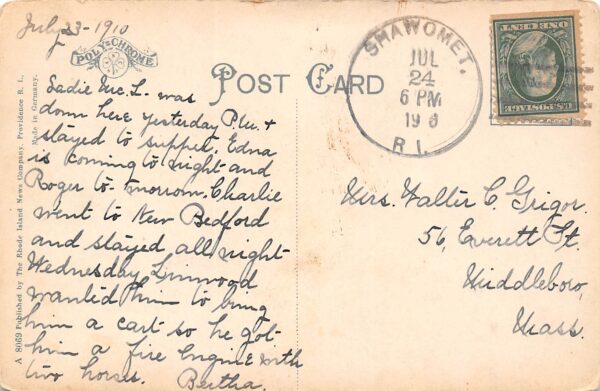 July 23-1910
POLY-CHROME
POST CARD
SHAWOMET.
JUL
24
6 PM
R. I.
U.S. POSTAGE
ONE CENT
Sadie Mc. L. was
down here yesterday P.M. +
stayed to supper. Edna
is coming to night and
Roger to-morrow. Charlie
went to New Bedford
and stayed all night
Wednesday. Linwood
wanted him to bring
him a cart so he got
him a fire Engine with
two horses. Bertha.
Mrs. Walter C. Grigor.
56, Everett St.
Middleboro,
Mass.
A 8069 Published by The Rhode Island News Company, Providence R. I.,
Made in Germany.